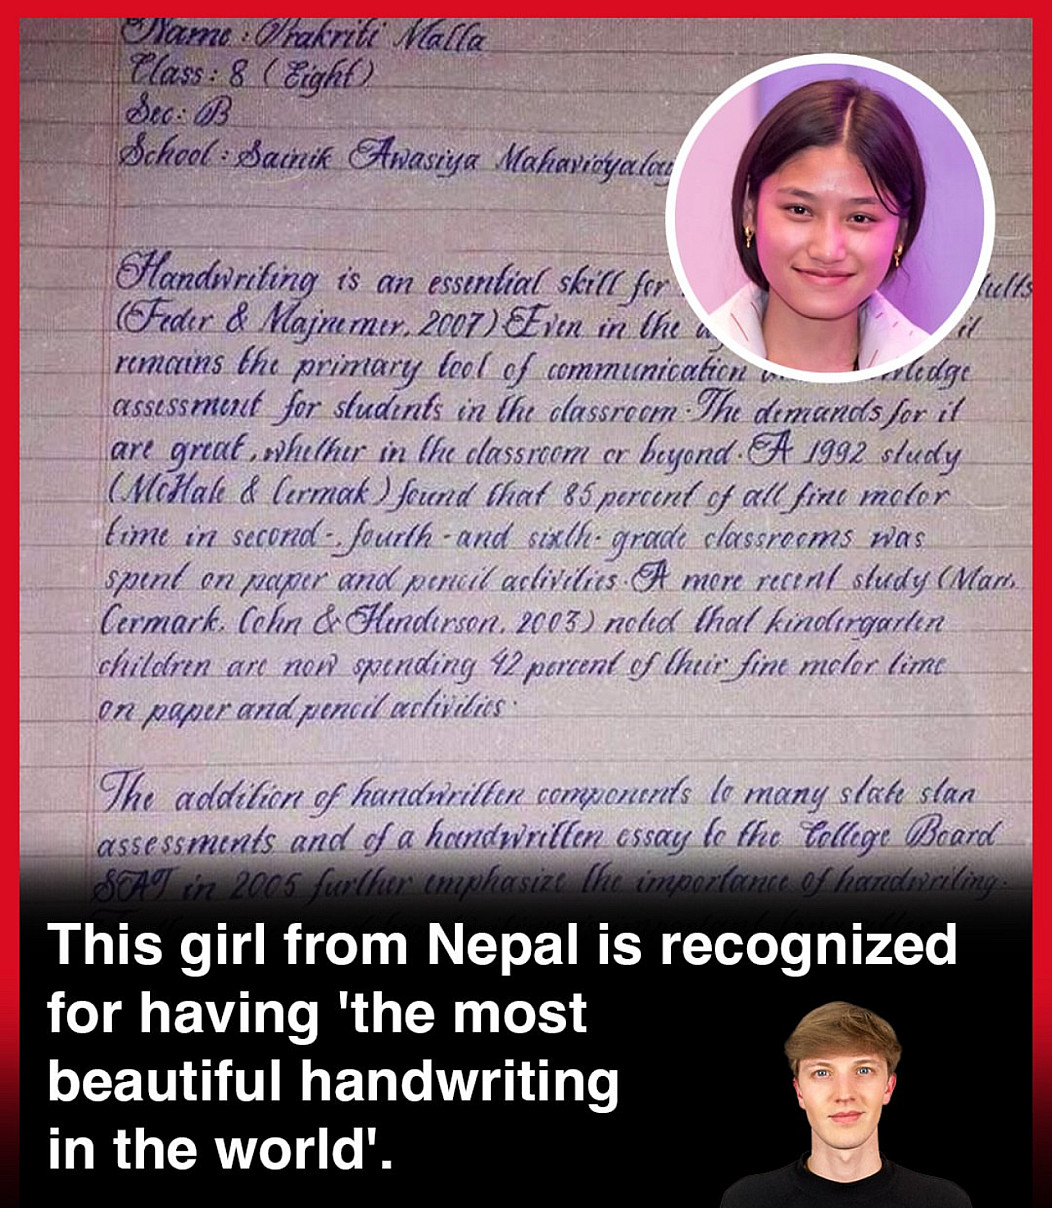 Name : Prakriti Malla
Class : 8 ( Eight )
Sec : B
School : Sainik Awasiya
Handwriting is an essential skill for
(Feder & Majnemer, 2007) Even in the it
remains the primary tool of communication
assessment for students in the classroom. The demands for it
are great, whether in the classroom or beyond. A 1992 study
(McHale & Cermak) found that 85 percent of all fine motor
time in second-, fourth - and sixth- grade classrooms was
spent on paper and pencil activities. A more recent study (Marr,
Cermark, Cohn & Henderson, 2003) noted that kindergarten
children are now spending 42 percent of their fine motor time
on paper and pencil activities.
The addition of handwritten components to many state stan
assessments and of a handwritten essay to the College Board
SAT in 2005 further emphasize the importance of handwriting.
This girl from Nepal is recognized
for having 'the most
beautiful handwriting
in the world'.